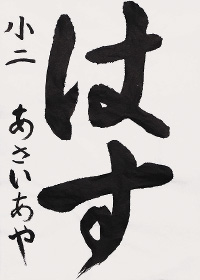 はす
小二 あさいあや